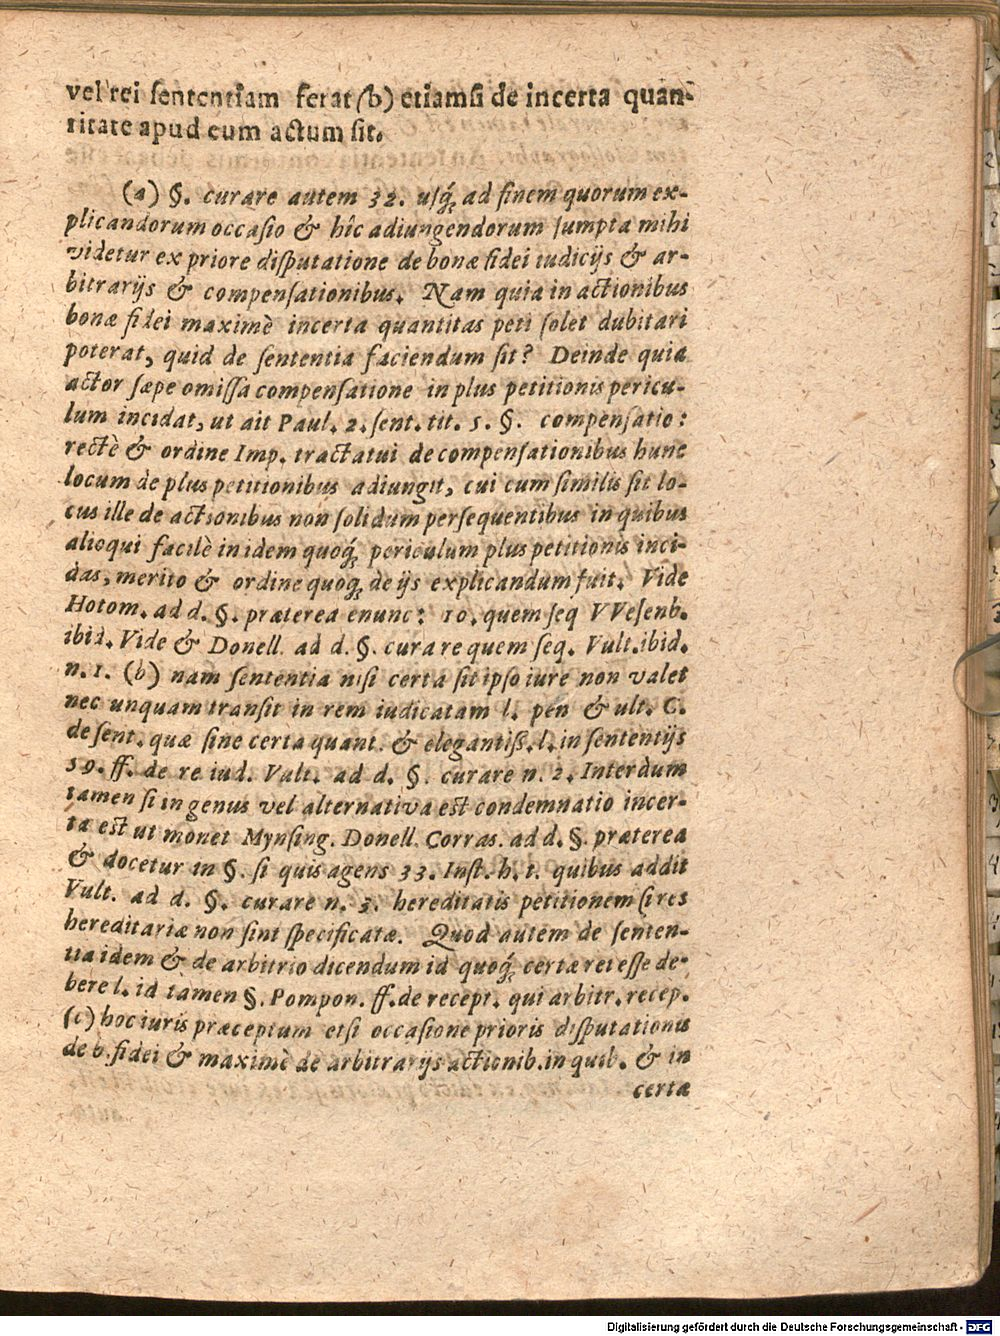 vel rei ſententiam ferat (b) etiamſi de incerta quan-
titate apud eum actum ſit.
(a) §. curare autem 32. uſq́; ad finem quorum ex-
plicandorum occaſio & hîc adiungendorum ſumpta mihi
videtur ex priore diſputatione de bonæ fidei iudicijs & ar-
bitrarijs & compenſationibus. Nam quia in actionibus
bonæ fidei maximè incerta quantitas peti ſolet dubitari
poterat, quid de ſententia faciendum ſit? Deinde quia
actor ſæpe omiſſa compenſatione in plus petitionis pericu-
lum incidat, ut ait Paul. 2. ſent. tit. 5. §. compenſatio:
rectè & ordine Imp. tractatui de compenſationibus hunc
locum de plus petitionibus adiungit, cui cum ſimilis ſit lo-
cus ille de actionibus non ſolidum perſequentibus in quibus
alioqui facilè in idem quoq́; periculum plus petitionis inci-
das, merito & ordine quoq; de ijs explicandum fuit. Vide
Hotom. ad d. §. præterea enunc: 10. quem ſeq VVeſenb.
ibid. Vide & Donell. ad d. §. curare quem ſeq. Vult. ibid.
n. 1. (b) nam ſententia niſi certa ſit ipſo iure non valet
nec unquam tranſit in rem iudicatam l. pen & ult. C.
de ſent. quæ ſine certa quant. & elegantiſſ. l. in ſententijs
59. ff. de re iud. Vult. ad d. §. curare n. 2. Interdum
tamen ſi in genus vel alternativa eſt condemnatio incer-
ta eſt ut monet Mynſing. Donell. Corras. ad d. §. præterea
& docetur in §. ſi quis agens 33. Inſt. h. t. quibus addit
Vult. ad d. §. curare n. 3. hereditatis petitionem ſi res
hereditariæ non ſint ſpecificatæ. Quod autem de ſenten-
tia idem & de arbitrio dicendum id quoq́; certæ rei eſſe de-
bere l. id tamen §. Pompon. ff. de recept. qui arbitr. recep.
(c) hoc iuris præceptum etſi occaſione prioris diſputationis
de b. fidei & maximè de arbitrarijs actionib. in quib. & in
certæ
Digitalisierung gefördert durch die Deutsche Forschungsgemeinschaft - DFG